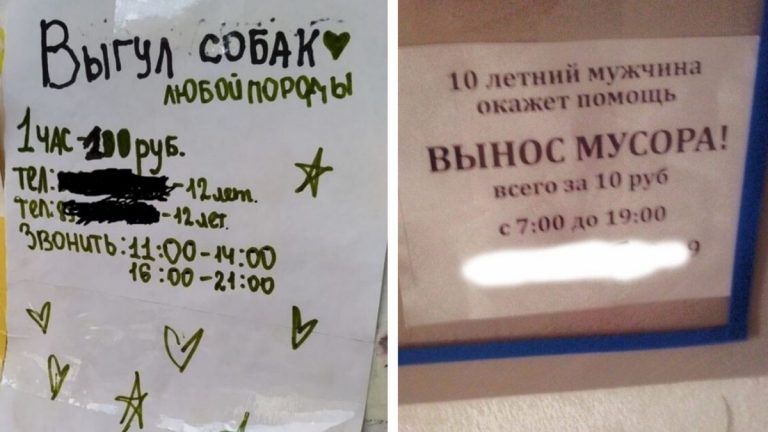 Выгул собак
любой породы
1 час - 100 руб.
Тел: - 12 лет.
Тел: - 12 лет.
Звонить: 11:00-14:00
16:00-21:00
10 летний мужчина
окажет помощь
ВЫНОС МУСОРА!
всего за 10 руб
с 7:00 до 19:00
9